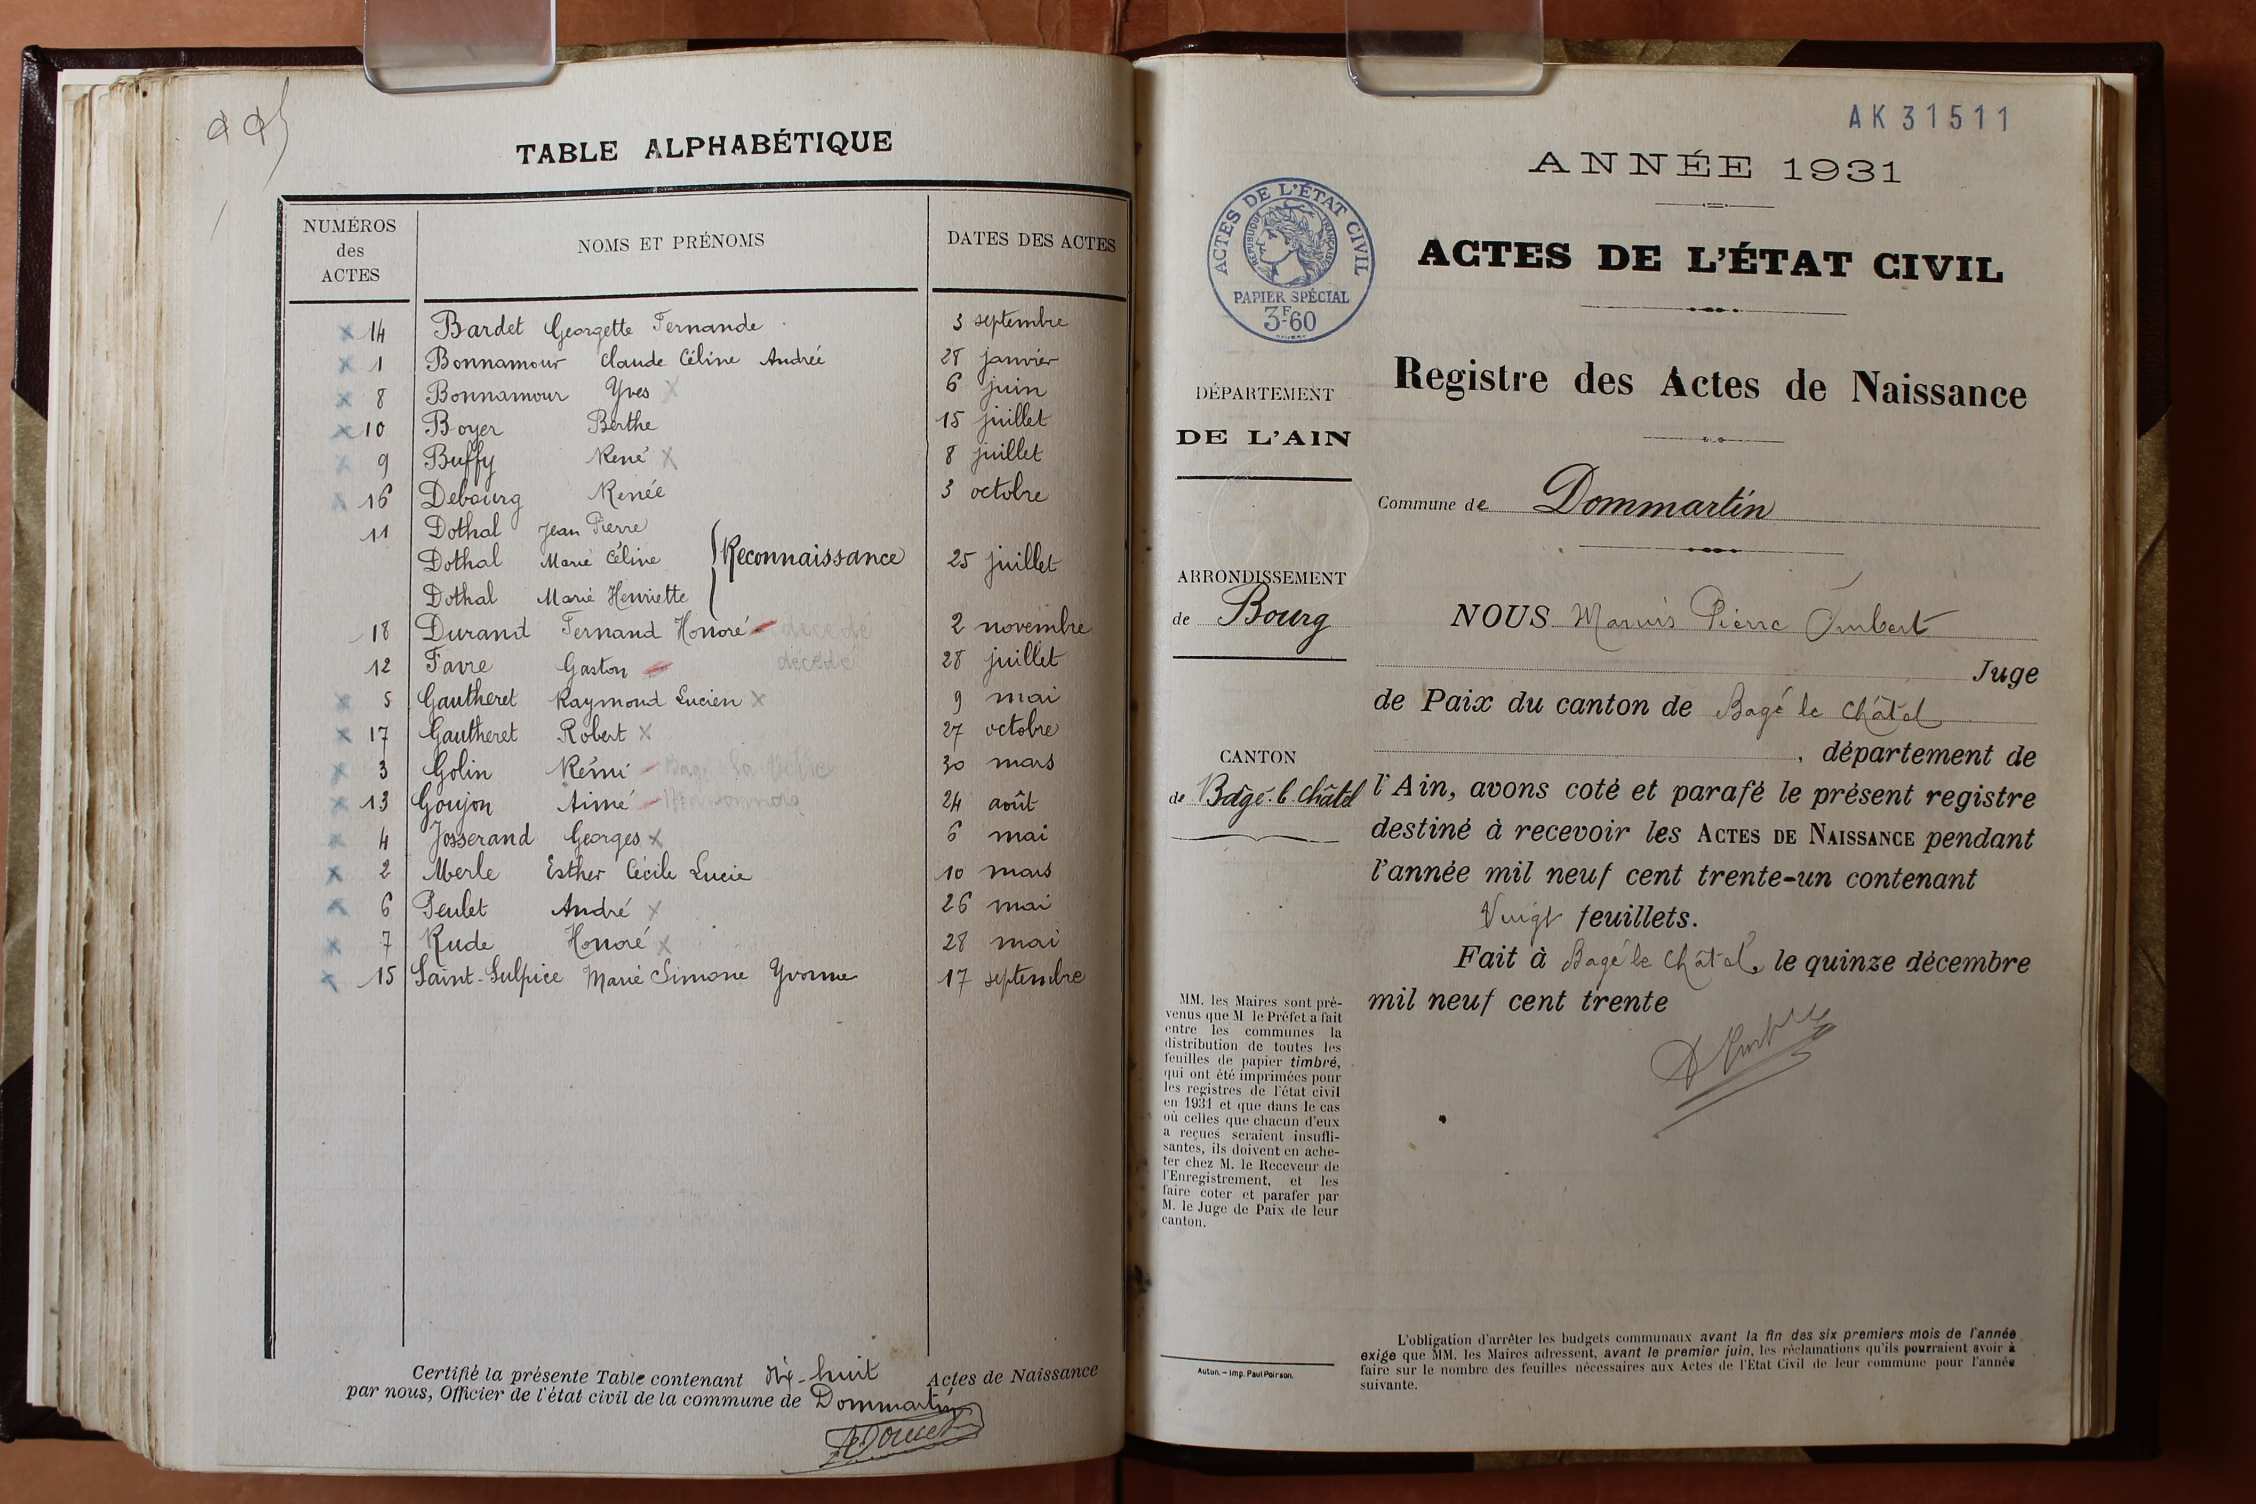 TABLE ALPHABÉTIQUE
NUMÉROS des ACTES NOMS ET PRÉNOMS DATES DES ACTES
14 Bardet Georgette Fernande 3 septembre
1 Bonnamour Claude Céline Andrée 28 janvier
8 Bonnamour Yves 6 juin
10 Boyer Berthe 15 juillet
9 Buffy René 8 juillet
16 Debourg Renée 3 octobre
11 Dothal Jean Pierre
Dothal Marie Céline Reconnaissance 25 juillet
Dothal Marie Henriette
18 Durand Fernand Honoré décédé 2 novembre
12 Favre Gaston décédé 28 juillet
5 Gautheret Raymond Lucien 9 mai
17 Gautheret Robert 27 octobre
3 Golin Rémi Bagé la Ville 30 mars
13 Goujon Aimé 24 août
4 Josserand Georges 6 mai
2 Merle Esther Cécile Lucie 10 mars
6 Peulet André 26 mai
7 Rude Honoré 28 mai
15 Saint-Sulpice Marie Simone Yvonne 17 septembre
Certifié la présente Table contenant dix-huit Actes de Naissance
par nous, Officier de l'état civil de la commune de Dommartin
AK 31511
ANNÉE 1931
ACTES DE L'ÉTAT CIVIL
RÉPUBLIQUE FRANÇAISE
PAPIER SPÉCIAL
3F60
ACTES DE L'ÉTAT CIVIL
Registre des Actes de Naissance
DÉPARTEMENT
DE L'AIN
Commune de Dommartin
ARRONDISSEMENT
de Bourg
CANTON
de Bâgé-le-Châtel
NOUS Marius Pierre Humbert
Juge
de Paix du canton de Bagé le Châtel
, département de
l'Ain, avons coté et parafé le présent registre
destiné à recevoir les ACTES DE NAISSANCE pendant
l'année mil neuf cent trente-un contenant
Vingt feuillets.
Fait à Bagé le Châtel, le quinze décembre
mil neuf cent trente
MM. les Maires sont pré-
venus que M le Préfet a fait
entre les communes la
distribution de toutes les
feuilles de papier timbré,
qui ont été imprimées pour
les registres de l'état civil
en 1931 et que dans le cas
où celles que chacun d'eux
a reçues seraient insuffi-
santes, ils doivent en ache-
ter chez M. le Receveur de
l'Enregistrement, et les
faire coter et parafer par
M. le Juge de Paix de leur
canton.
Autun. – Imp. Paul Poirson.
L'obligation d'arrêter les budgets communaux avant la fin des six premiers mois de l'année
exige que MM. les Maires adressent, avant le premier juin, les réclamations qu'ils pourraient avoir à
faire sur le nombre des feuilles nécessaires aux Actes de l'Etat Civil de leur commune pour l'année
suivante.